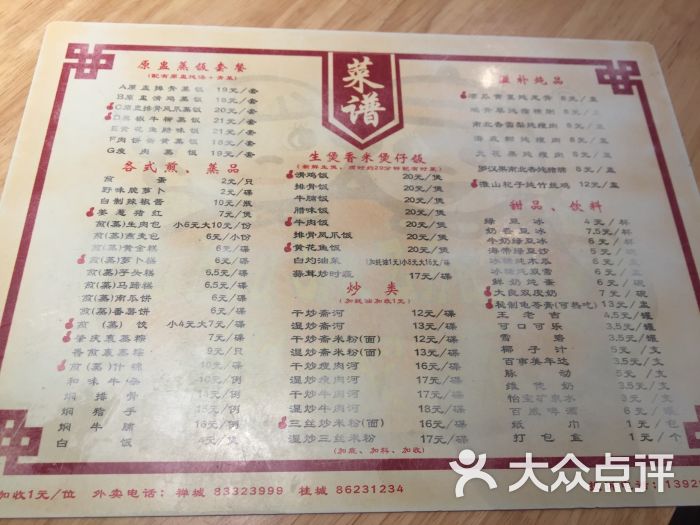 菜谱
原盅蒸饭套餐
(配有原盅炖汤+青菜)
A原盅排骨蒸饭 19元/套
B原盅滑鸡蒸饭 19元/套
C原盅排骨凤爪蒸饭 20元/套
21元/套
E黄花鱼腊味饭 21元/套
19元/套
G瘦肉蒸饭 19元/套
各式煎、蒸品
煎蛋 2元/只
野味脆萝卜 2元/碟
自制辣椒酱 10元/瓶
姜葱猪红 7元/煲
煎(蒸)生肉包 小6元大10元/份
煎(蒸)燕麦包 7元/小份
煎(蒸)黄金糕 6元/碟
煎(蒸)萝卜糕 6元/碟
煎(蒸)芋头糕 6.5元/碟
煎(蒸)马蹄糕 6.5元/碟
煎(蒸)南瓜饼 6元/碟
煎(蒸)番薯饼 6元/碟
煎(蒸)饺 小4元大7元/碟
肇庆裹蒸粽 7元/碟
香煎裹蒸粽 9元/只
煎(蒸)什锦 10元/碟
和味牛杂 10元/例
焖排骨 15元/例
焖猪手 15元/例
焖牛腩 16元/例
白饭
生煲香米煲仔饭
滑鸡饭 20元/煲
排骨饭 20元/煲
牛腩饭 20元/煲
腊味饭 20元/煲
牛肉饭 20元/煲
排骨凤爪饭 20元/煲
黄花鱼饭 20元/煲
白灼油菜
蒸茸炒时蔬 17元/碟
炒类
(加豉油加收1元)
干炒斋河 12元/碟
湿炒斋河 13元/碟
干炒斋米粉(面) 12元/碟
湿炒斋米粉(面) 13元/碟
干炒瘦肉河 16元/碟
湿炒瘦肉河 17元/碟
干炒牛肉河 17元/碟
湿炒牛肉河 18元/碟
三丝炒米粉(面) 16元/碟
湿炒三丝米粉 17元/碟
(加底、加料、加收)
滋补炖品
8元/盅
8元/盅
南北杏雪梨炖瘦肉 8元/盅
8元/盅
8元/盅
罗汉果南北杏炖猪𦟌 8元/盅
淮山杞子炖竹丝鸡 12元/盅
甜品、饮料
绿豆冰 4元/杯
奶香豆冰 7.5元/杯
牛奶绿豆冰 6元/杯
海带绿豆沙 4.5元/碗
冰糖炖木瓜 6元/盅
冰糖炖双雪 7元/盅
鲜奶炖蛋 6元/盅
大良双皮奶 7元/碗
秘制龟苓膏(可热吃) 13元/盅
王老吉 4.5元/罐
可口可乐 3.5元/罐
雪碧 3.5元/罐
椰子汁 5元/支
百事美年达 3.5元/罐
脉动 5元/支
维他奶 3.5元/支
怡宝矿泉水 3元/支
百威啤酒 6元/罐
纸巾 1元/包
打包盒 1元/个
加收1元/位 外卖电话:禅城 83323999 桂城 86231234
1392
大众点评